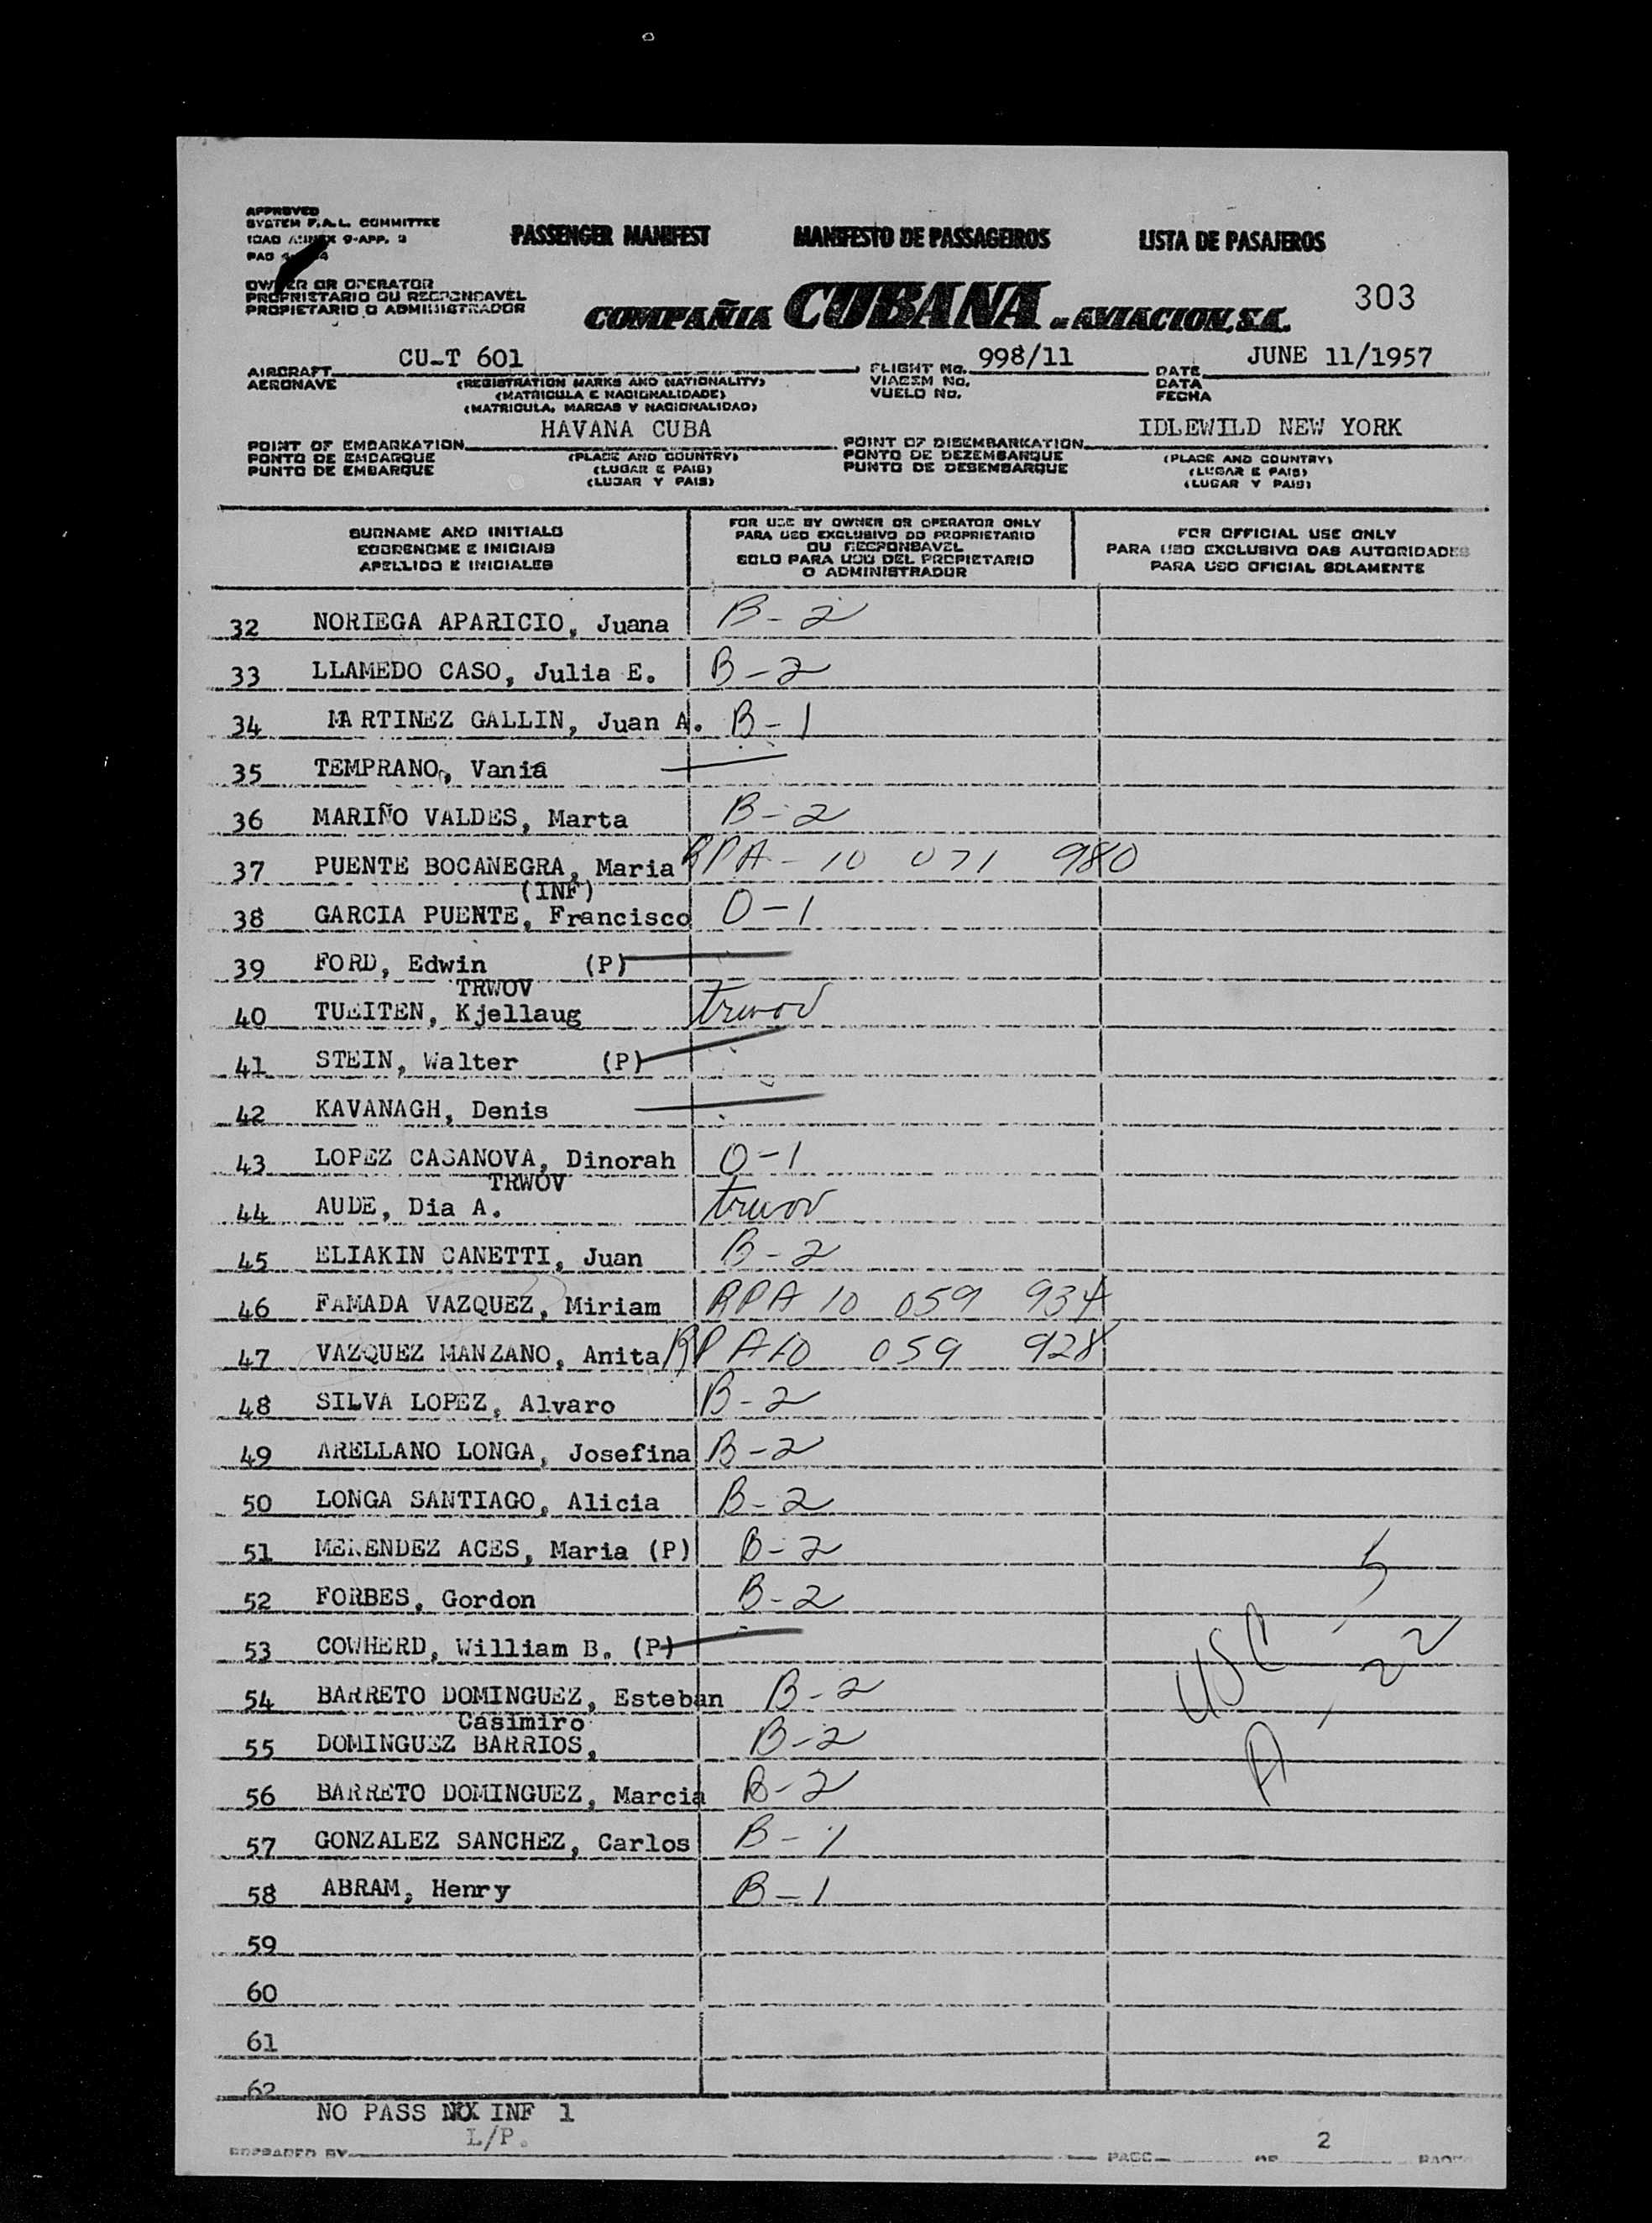 APPROVED
SYSTEM F.A.L. COMMITTEE
ICAO ANNEX 9-APP. 3
PASSENGER MANIFEST MANIFESTO DE PASSAGEIROS LISTA DE PASAJEROS
OWNER OR OPERATOR
PROPRIETARIO OU RESPONSAVEL
PROPIETARIO O ADMINISTRADOR
COMPAÑIA CUBANA DE AVIACION, S.A. 303
AIRCRAFT CU-T 601 FLIGHT No. 998/11 DATE JUNE 11/1957
AERONAVE (REGISTRATION MARKS AND NATIONALITY) VIAGEM No. DATA
(MATRICULA E NACIONALIDADE) VUELO No. FECHA
(MATRICULA, MARCAS Y NACIONALIDAD)
POINT OF EMBARKATION HAVANA CUBA POINT OF DISEMBARKATION IDLEWILD NEW YORK
PONTO DE EMBARQUE (PLACE AND COUNTRY) PONTO DE DEZEMBARQUE (PLACE AND COUNTRY)
PUNTO DE EMBARQUE (LUGAR E PAIS) PUNTO DE DESEMBARQUE (LUGAR E PAIS)
(LUGAR Y PAIS) (LUGAR Y PAIS)
SURNAME AND INITIALS
SOBRENOME E INICIAIS
APELLIDO E INICIALES
FOR USE BY OWNER OR OPERATOR ONLY
PARA USO EXCLUSIVO DO PROPRIETARIO
OU RESPONSAVEL
SOLO PARA USO DEL PROPIETARIO
O ADMINISTRADOR
FOR OFFICIAL USE ONLY
PARA USO EXCLUSIVO DAS AUTORIDADES
PARA USO OFICIAL SOLAMENTE
32 NORIEGA APARICIO, Juana B-2
33 LLAMEDO CASO, Julia E. B-2
34 MARTINEZ GALLIN, Juan A. B-1
35 TEMPRANO, Vania
36 MARIÑO VALDES, Marta B-2
37 PUENTE BOCANEGRA, Maria RPA-10 071 980
(INF)
38 GARCIA PUENTE, Francisco O-1
39 FORD, Edwin (P)
TRWOV
40 TUEITEN, Kjellaug trwov
41 STEIN, Walter (P)
42 KAVANAGH, Denis
43 LOPEZ CASANOVA, Dinorah O-1
TRWOV
44 AUDE, Dia A. trwov
45 ELIAKIN CANETTI, Juan B-2
46 FAMADA VAZQUEZ, Miriam RPA 10 059 934
47 VAZQUEZ MANZANO, Anita RPA 10 059 928
48 SILVA LOPEZ, Alvaro B-2
49 ARELLANO LONGA, Josefina B-2
50 LONGA SANTIAGO, Alicia B-2
51 MENENDEZ ACES, Maria (P) B-2
52 FORBES, Gordon B-2
53 COWHERD, William B. (P)
54 BARRETO DOMINGUEZ, Esteban B-2
Casimiro
55 DOMINGUEZ BARRIOS, B-2
56 BARRETO DOMINGUEZ, Marcia B-2
57 GONZALEZ SANCHEZ, Carlos B-1
58 ABRAM, Henry B-1
USC - 5
A - 22
59
60
61
62
NO PASS INF 1
L/P.
PREPARED BY PAGE OF 2 PAGES